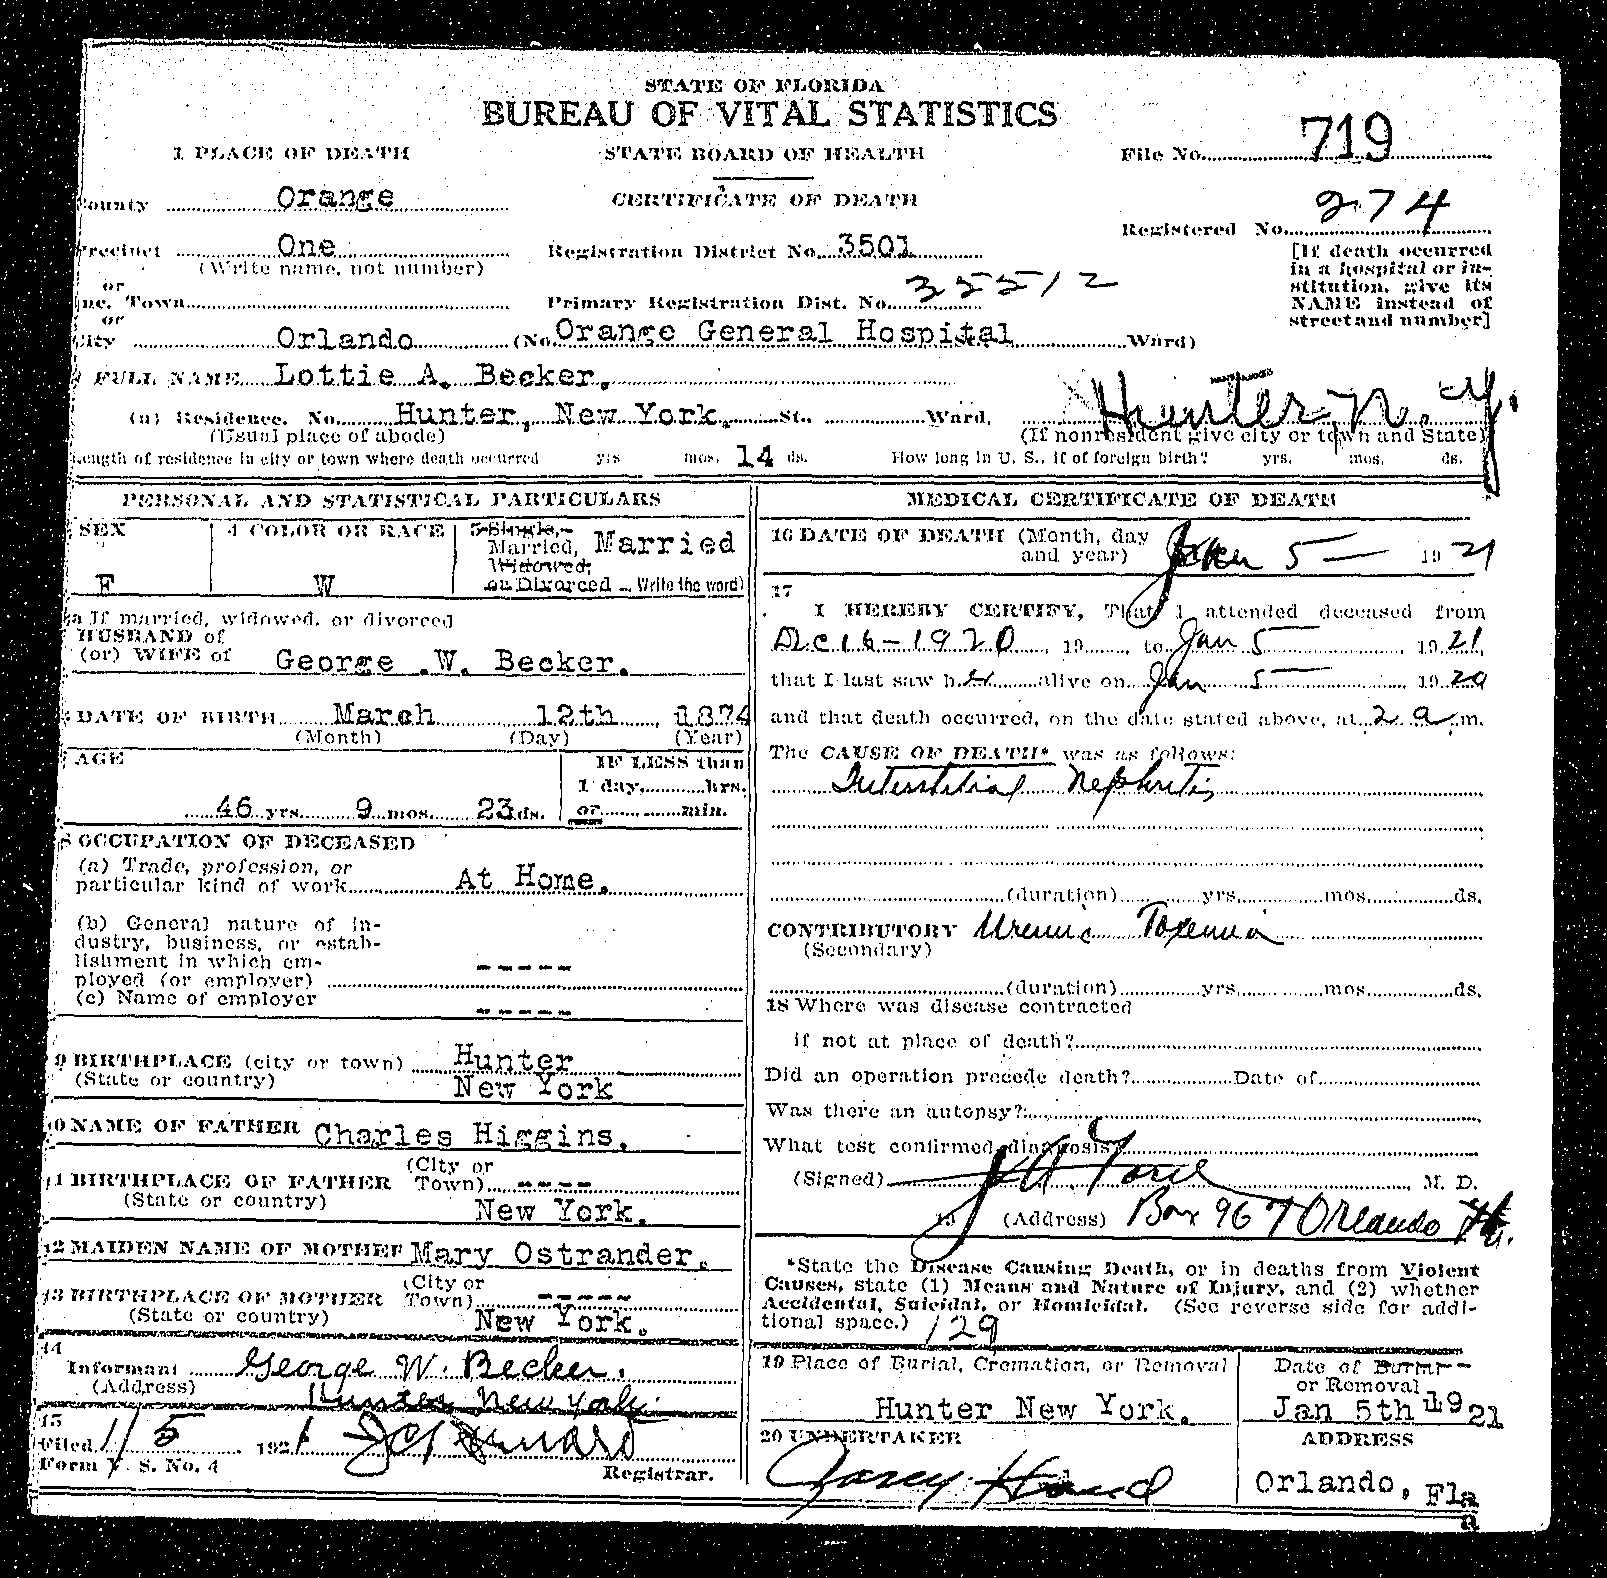 STATE OF FLORIDA
BUREAU OF VITAL STATISTICS
1 PLACE OF DEATH
STATE BOARD OF HEALTH
File No. 719
County Orange
CERTIFICATE OF DEATH
Registered No. 274
Precinct One
(Write name, not number)
Registration District No. 3501
[If death occurred
in a hospital or in-
stitution, give its
NAME instead of
street and number]
or
Inc. Town
Primary Registration Dist. No. 35512
or
City Orlando (No. Orange General Hospital St., Ward)
FULL NAME Lottie A. Becker.
(a) Residence. No. Hunter, New York. St., Ward. Hunter, N. Y.
(Usual place of abode) (If nonresident give city or town and State)
Length of residence in city or town where death occurred yrs mos. 14 ds. How long in U. S., if of foreign birth? yrs. mos. ds.
PERSONAL AND STATISTICAL PARTICULARS
SEX
F
4 COLOR OR RACE
W
5 Single,
Married,
Widowed,
or Divorced Write the word)
Married
a If married, widowed, or divorced
HUSBAND of
(or) WIFE of George .W. Becker.
DATE OF BIRTH March 12th 1874
(Month) (Day) (Year)
AGE
46 yrs. 9 mos. 23 ds.
IF LESS than
1 day, hrs.
or min.
OCCUPATION OF DECEASED
(a) Trade, profession, or
particular kind of work At Home.
(b) General nature of in-
dustry, business, or estab-
lishment in which em-
ployed (or employer) -----
(c) Name of employer -----
9 BIRTHPLACE (city or town) Hunter
(State or country) New York
10 NAME OF FATHER Charles Higgins.
11 BIRTHPLACE OF FATHER (City or Town) ----
(State or country) New York.
12 MAIDEN NAME OF MOTHER Mary Ostrander.
13 BIRTHPLACE OF MOTHER (City or Town) -----
(State or country) New York.
14
Informant George W. Becker.
(Address) Hunter New York.
15
Filed 1/5 1921
Registrar.
Form V. S. No. 4
MEDICAL CERTIFICATE OF DEATH
16 DATE OF DEATH (Month, day
and year) Jan 5 — 1921
17
I HEREBY CERTIFY, That I attended deceased from
Dec 16 - 1920, 19 to Jan 5 , 1921,
that I last saw her alive on Jan 5 — , 1920
and that death occurred, on the date stated above, at 2 a m.
The CAUSE OF DEATH* was as follows:
Interstitial Nephritis
(duration) yrs. mos. ds.
CONTRIBUTORY Uremic Toxemia
(Secondary)
(duration) yrs. mos. ds.
18 Where was disease contracted
if not at place of death?
Did an operation precede death? Date of
Was there an autopsy?
What test confirmed diagnosis?
(Signed) M. D.
19 (Address) Box 967 Orlando Fla.
*State the Disease Causing Death, or in deaths from Violent
Causes, state (1) Means and Nature of Injury, and (2) whether
Accidental, Suicidal, or Homicidal. (See reverse side for addi-
tional space.) 129
19 Place of Burial, Cremation, or Removal
Hunter New York.
Date of Burial
or Removal
Jan 5th 1921
20 UNDERTAKER
Carey Hand
ADDRESS
Orlando, Fla
a